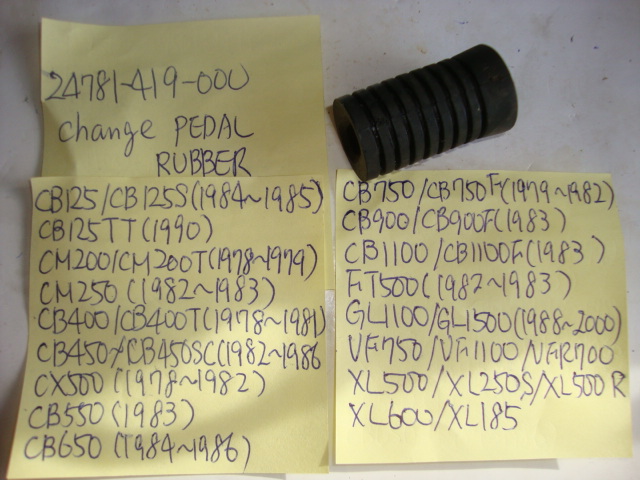 24781-419-000
change PEDAL
RUBBER
CB125/CB125S(1984~1985)
CB125TT(1990)
CM200/CM200T(1978~1979)
CM250 (1982~1983)
CB400/CB400T(1978~1981)
CB450/CB450SC(1982~1986
CX500 (1978~1982)
CB550 (1983)
CB650 (1984~1986)
CB750/CB750F(1979~1982)
CB900/CB900F(1983)
CB1100/CB1100F(1983)
FT500(1982~1983)
GL1100/GL1500(1988~2000)
VF750/VF1100/VFR700
XL500/XL250S/XL500R
XL600/XL185